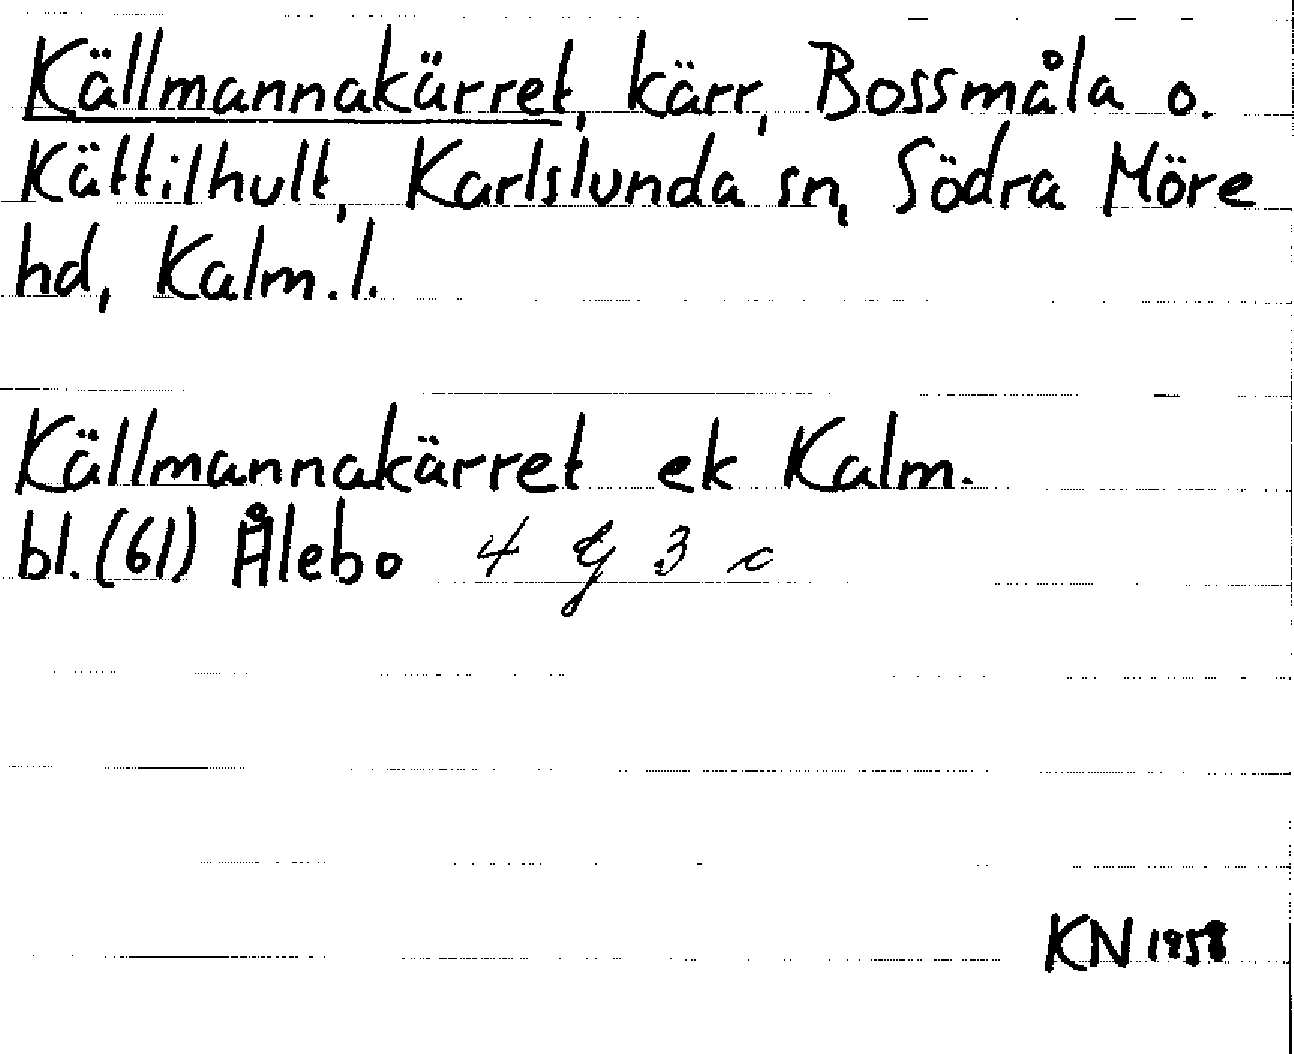 Källmannakärret, kärr, Bossmåla o.
Kättilhult, Karlslunda sn, Södra Möre
hd, Kalm.l.
Källmannakärret ek Kalm.
bl.(61) Ålebo 4 G 3 c
KN 1958